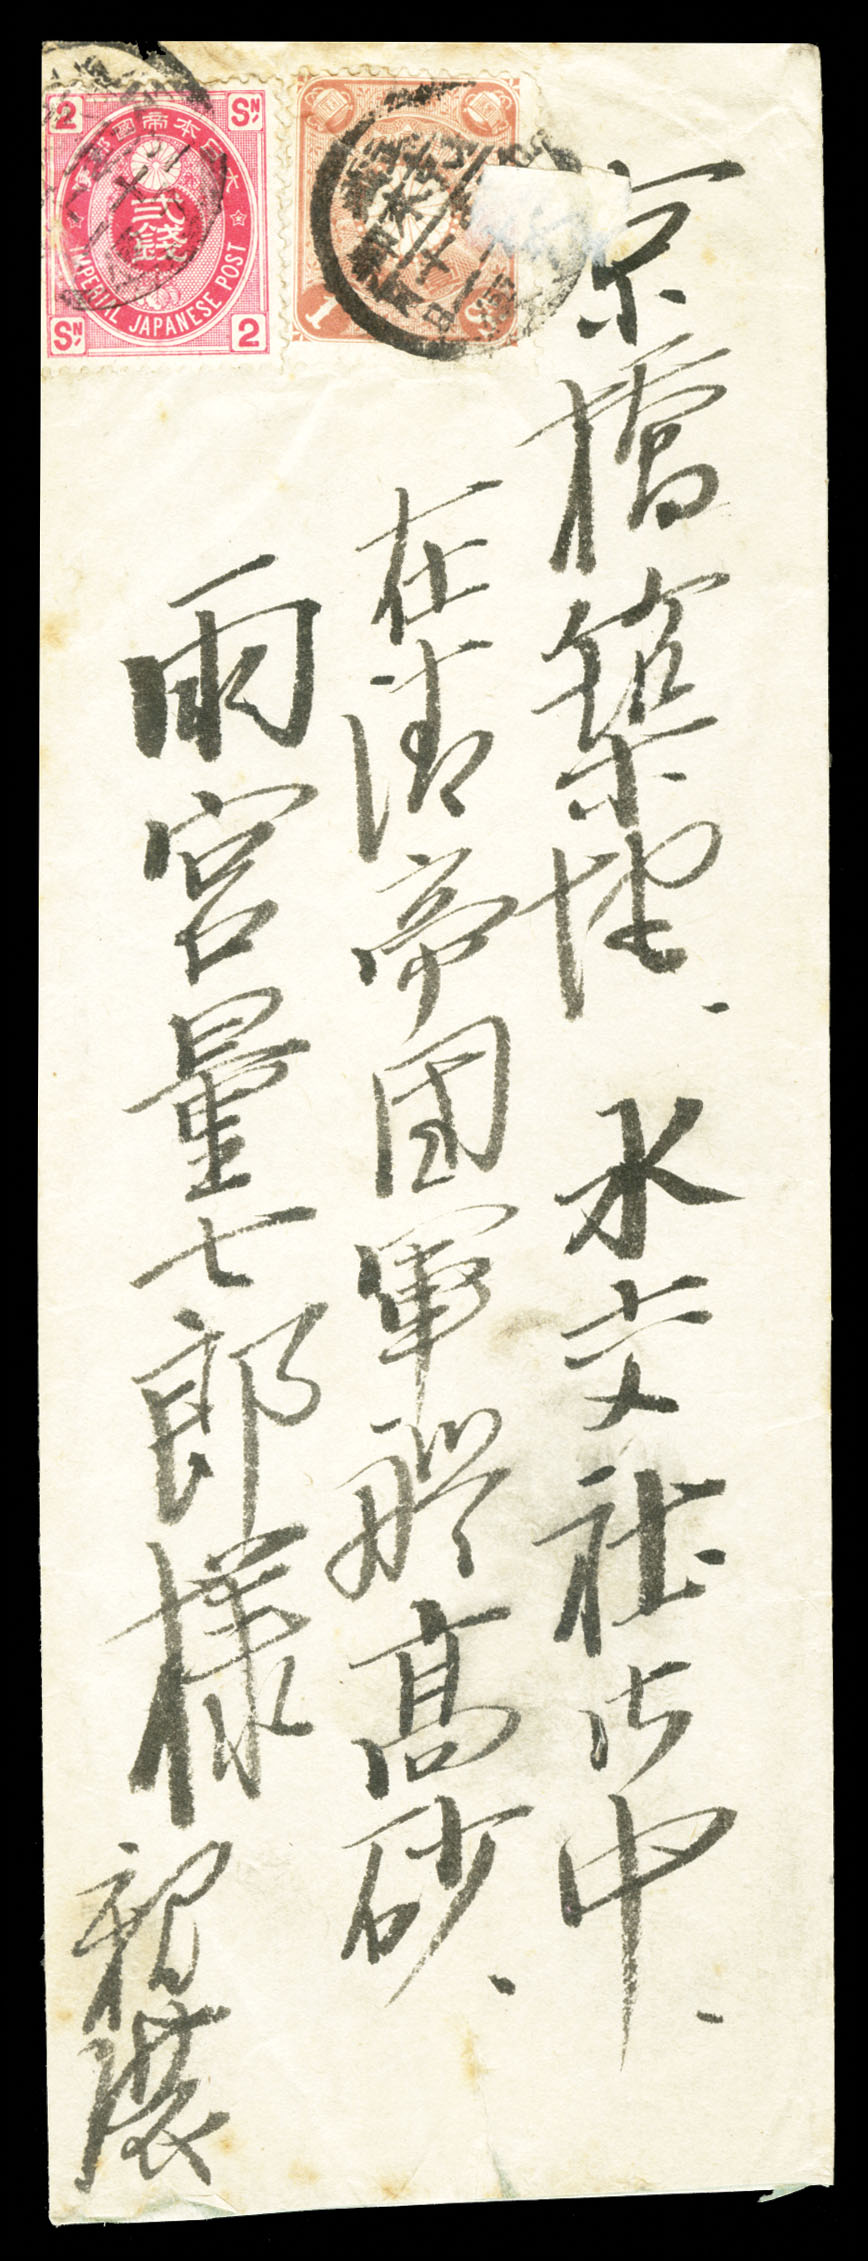 京橋築地、水交社御中、
在清帝国軍艦高砂、
雨宮量七郎様
親展
大日本帝國郵便
貳錢
IMPERIAL JAPANESE POST
2
SN
SN
2
1